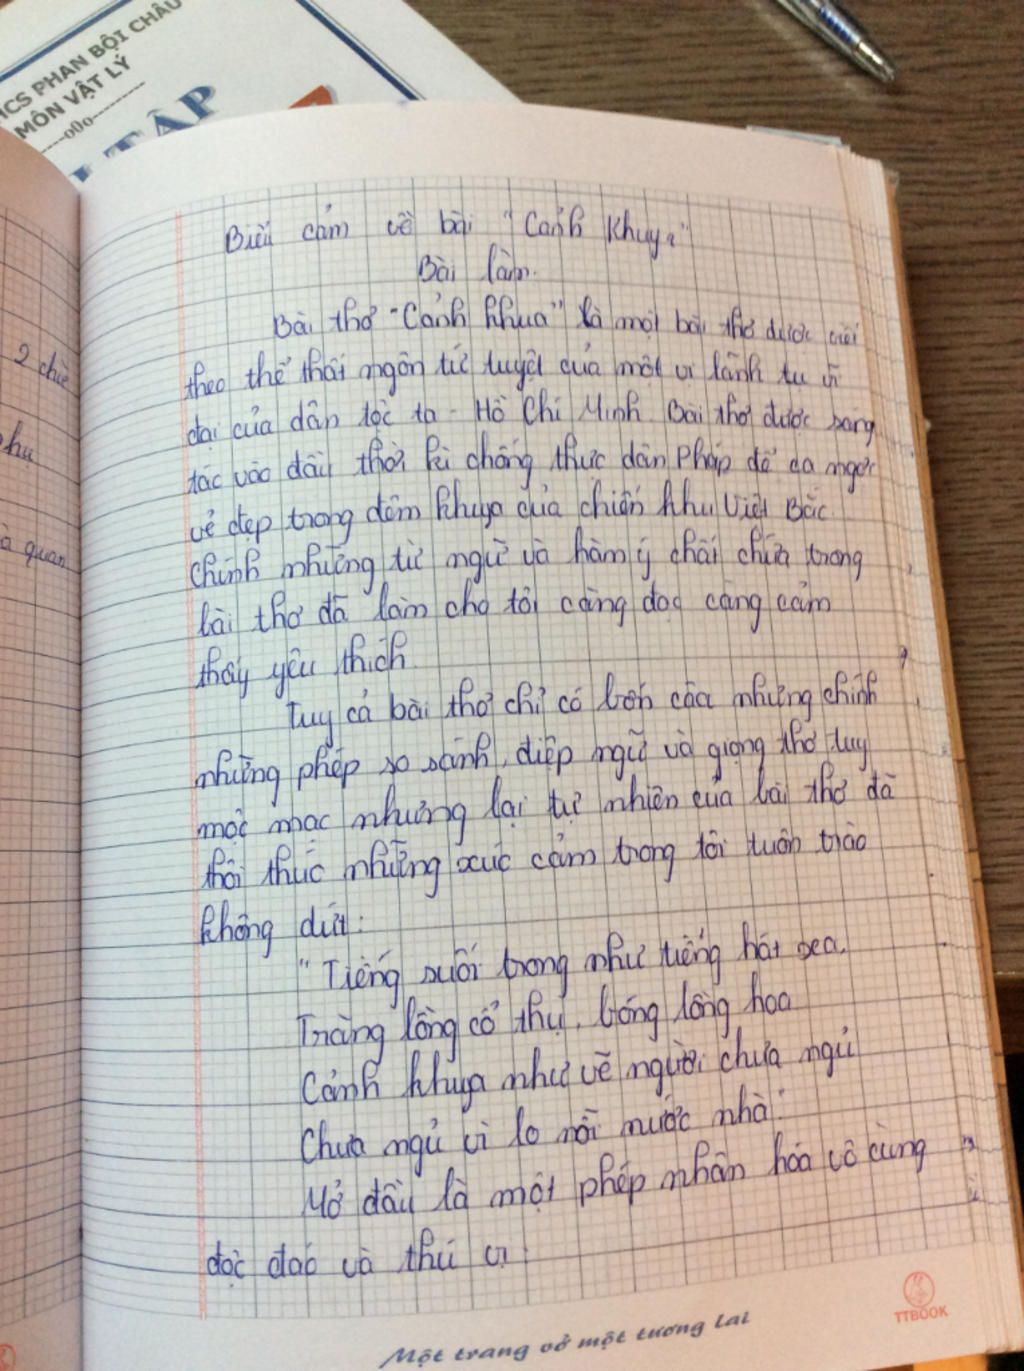 HCS PHAN BỘI CHÂU
MÔN VẬT LÝ
---o0o---
TẬP
2 chiề
hu
à quan
Biểu cảm về bài "Cảnh Khuya"
Bài làm.
Bài thơ "Cảnh khua" là một bài thơ được viết
theo thể thất ngôn tứ tuyệt của một vị lãnh tụ vĩ
đại của dân tộc ta - Hồ Chí Minh. Bài thơ được sáng
tác vào đầu thời kì chống thực dân Pháp để ca ngợi
vẻ đẹp trong đêm khuya của chiến khu Việt Bắc
Chính những từ ngữ và hàm ý chất chứa trong
bài thơ đã làm cho tôi càng đọc càng cảm
thấy yêu thích
Tuy cả bài thơ chỉ có bốn câu nhưng chính
những phép so sánh, điệp ngữ và giọng thơ tuy
mộc mạc nhưng lại tự nhiên của bài thơ đã
thôi thúc những xúc cảm trong tôi tuôn trào
không dứt:
"Tiếng suối trong như tiếng hát xa,
Trăng lồng cổ thụ, bóng lồng hoa
Cảnh khuya như vẽ người chưa ngủ
Chưa ngủ vì lo nỗi nước nhà"
Mở đầu là một phép nhân hóa vô cùng
độc đáo và thú vị:
TTBOOK
Một trang vở một tương lai